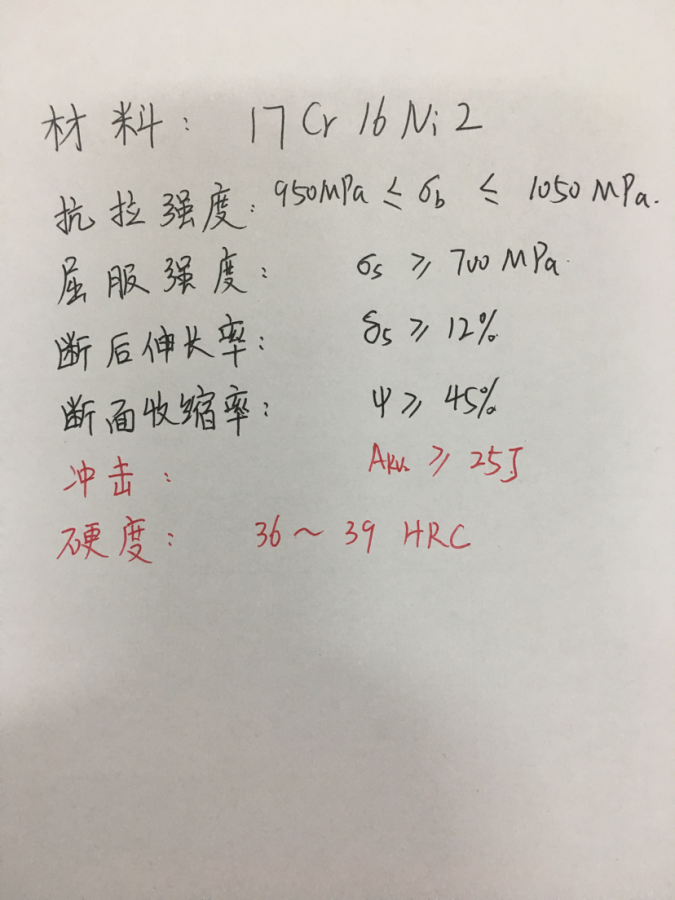 材料： 17Cr16Ni2
抗拉强度： 950MPa ≤ σb ≤ 1050MPa.
屈服强度： σs ≥ 700MPa.
断后伸长率： δ5 ≥ 12%
断面收缩率： ψ ≥ 45%
冲击： Aku ≥ 25J
硬度： 36～39 HRC